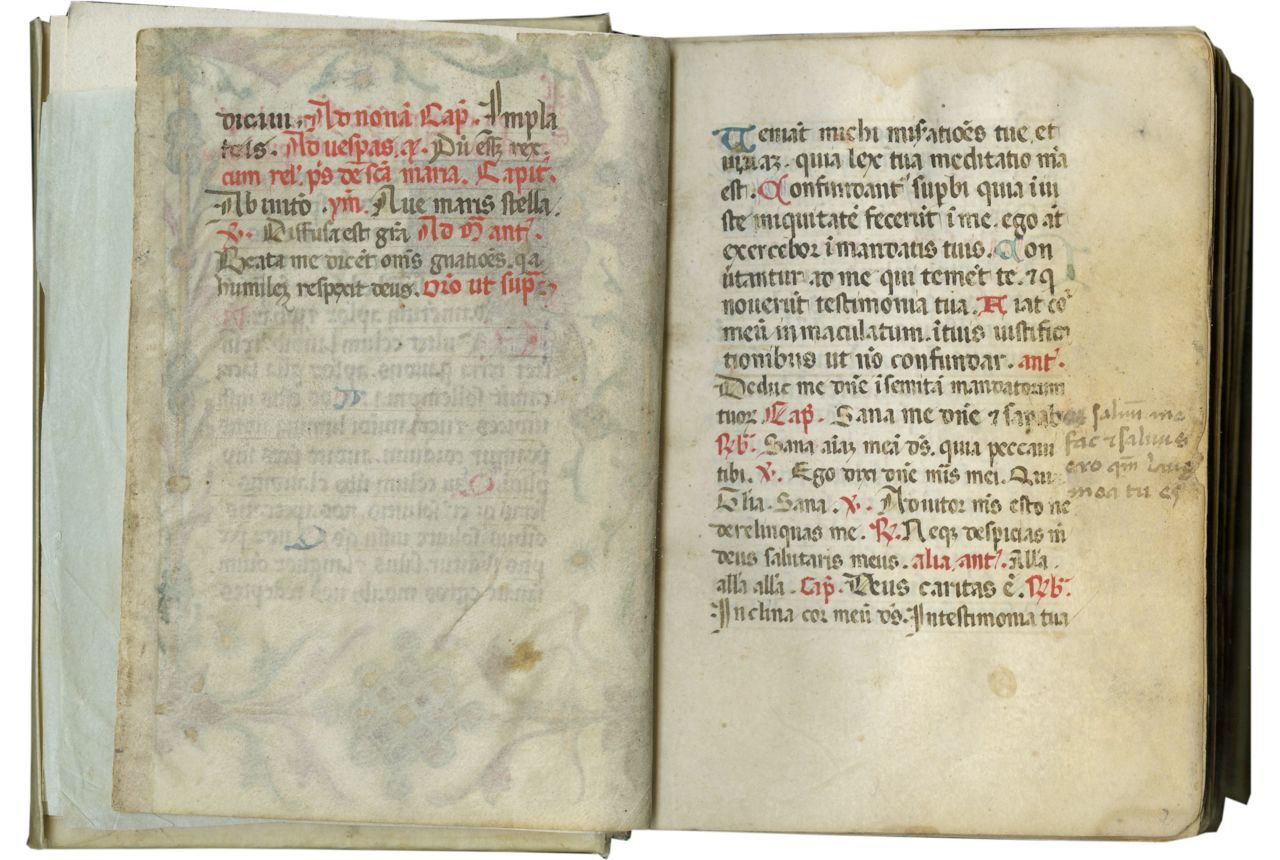 dicam. Ad nonā Cap̄. In pla
teis. Ad vesp̄as. Dū esset rex.
cum rel. p̄s de scā maria. Capit̄.
Ab initio. ym̄. Aue maris stella.
℣. Diffusa est grā Ad M̄ ant̄.
Beata me dicēt om̄s gn̄atiōes. q̄a
humilem respexit deus. Or̄o ut sup̄
Ueniāt michi mis̄atiōes tue et
uiuaꝫ. quia lex tua meditatio m̄a
est. Confundant̄ sup̄bi quia iniu
ste iniquitatē fecerūt ī me. ego āt
exercebor ī mandatis tuis. Con
ūtantur ad me qui timēt te. ⁊ q̄
nouerūt testimonia tua. Fiat cor
meū inmaculatum. ītuis iustifica
tionibus ut nō confundar. ant̄.
Deduc me dn̄e ī semitā mandatorum
tuoꝝ Cap̄. Sana me dn̄e ⁊ sanabor saluū me
℟b̄. Sana aīaꝫ meā ds̄. quia peccaui fac ⁊ saluus
tibi. ℣. Ego dixi dn̄e mis̄ mei. Qui ero qm̄ laus
Gl̄ia. Sana. ℣. Adiutor m̄s esto ne mea tu es
derelinquas me. ℟. Neqꝫ despicias m̄
deus salutaris meus. alia ant̄. Alla.
alla alla. Cap̄. Deus caritas ē. ℟b̄.
Inclina cor meū ds̄. In testimonia tua